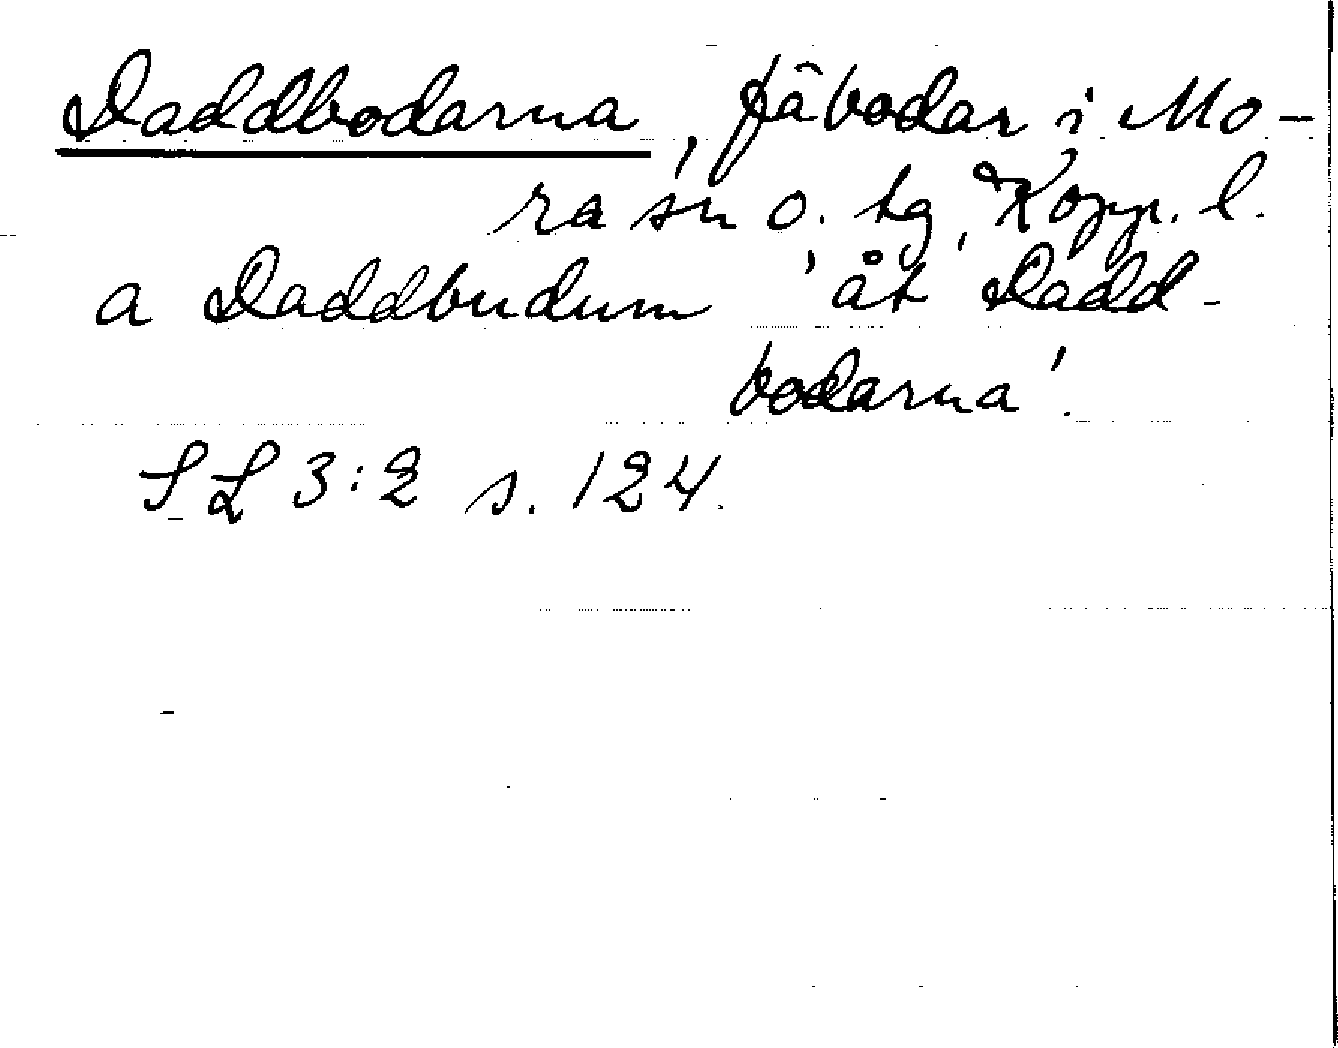 Daddbodarna, fäbodar i Mo-
ra sn o. tg, Kopp. l.
a Daddbudum 'åt Dadd-
bodarna'.
SL 3:2 s. 124.